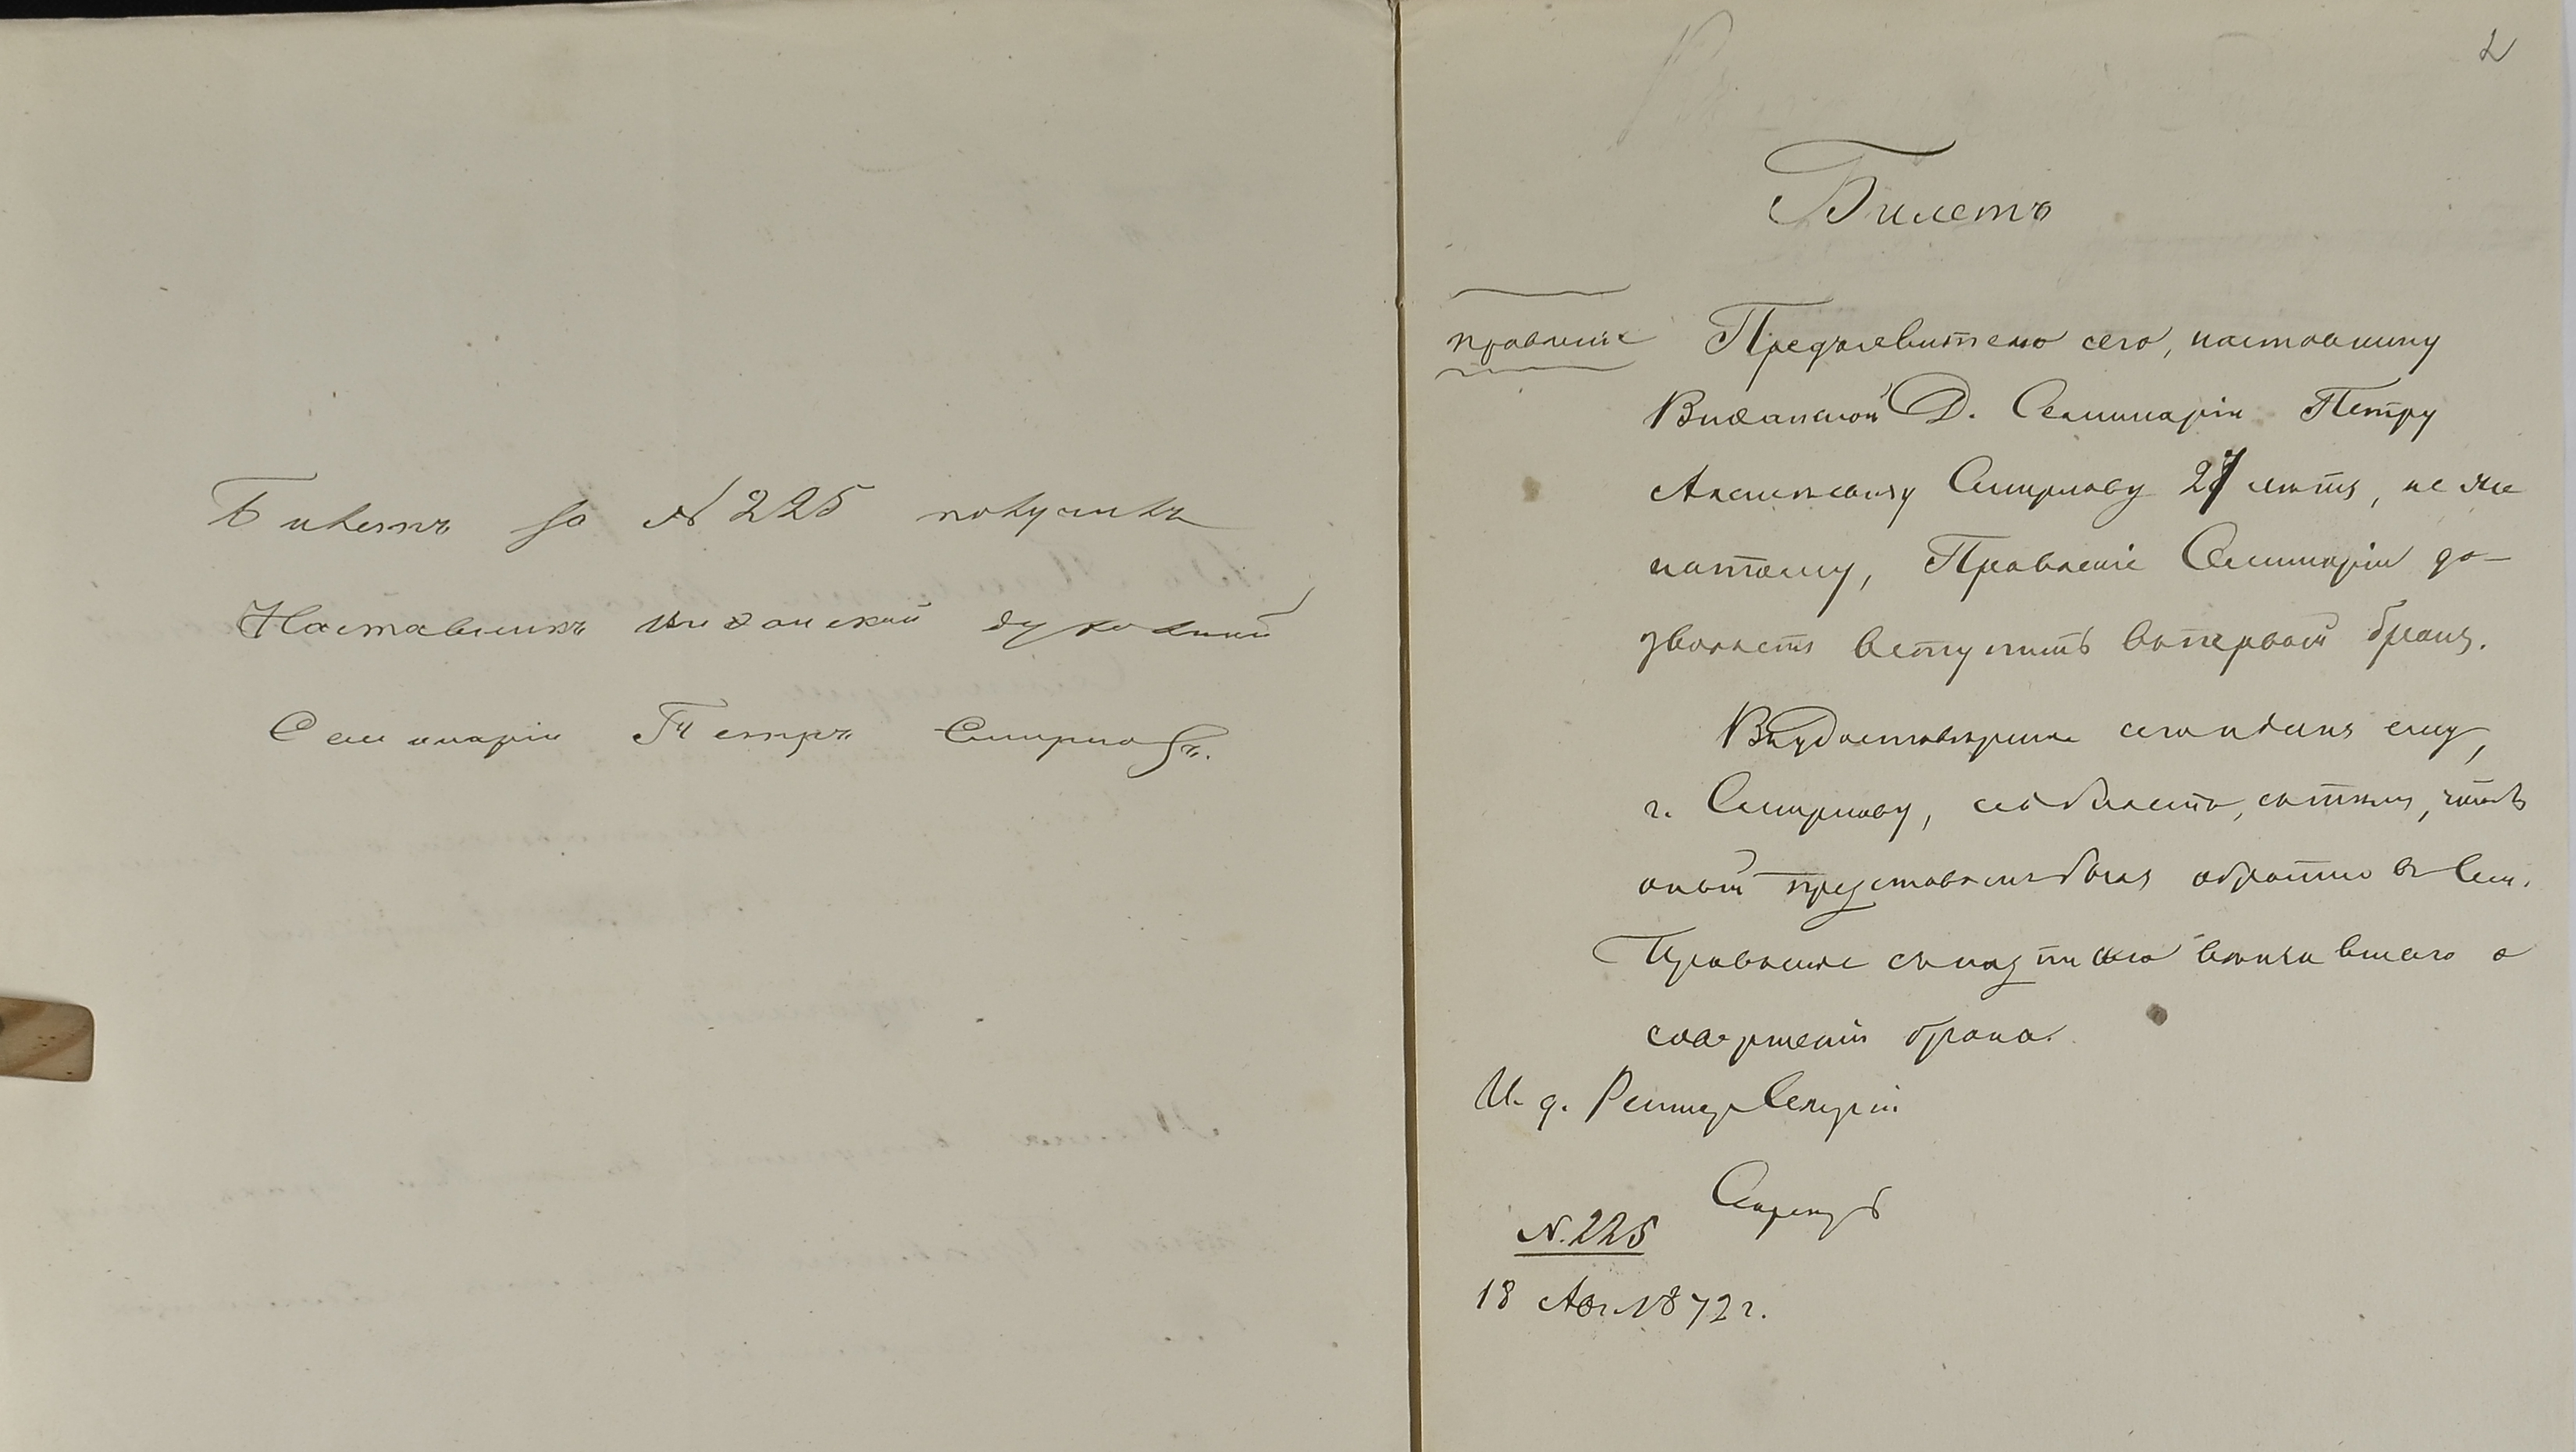 Билетъ за № 225 получилъ
Наставникъ Виѳанской духовной
Семинаріи Петръ Смирновъ.
2
Билетъ
правленіе
Предъявителю сего, наставнику
Виѳанской Д. Семинаріи Петру
Алексѣевичу Смирнову 27 лѣтъ, не же
натому, Правленіе Семинаріи до-
зволяетъ вступить въ первый бракъ.
Въ удостовѣреніе сего и данъ ему,
г. Смирнову, сей билетъ, съ тѣмъ, чтобъ
оный представленъ былъ обратно въ Сем.
Правленіе съ надписью вѣнчавшаго о
совершеніи брака.
И. д. Ректора Семинаріи
Секретарь
N. 225
18 Авг. 1872 г.